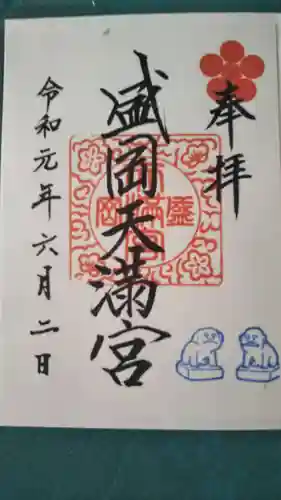 奉拝
盛岡天満宮
令和元年六月二日